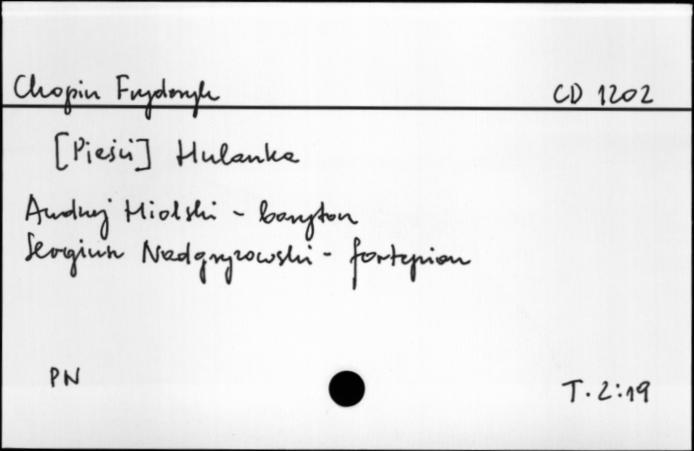 Chopin Fryderyk CD 1202
[Pieśni] Hulanka
Andrzej Hiolski - baryton
Sergiusz Nadgryzowski - fortepian
PN T. 2:19